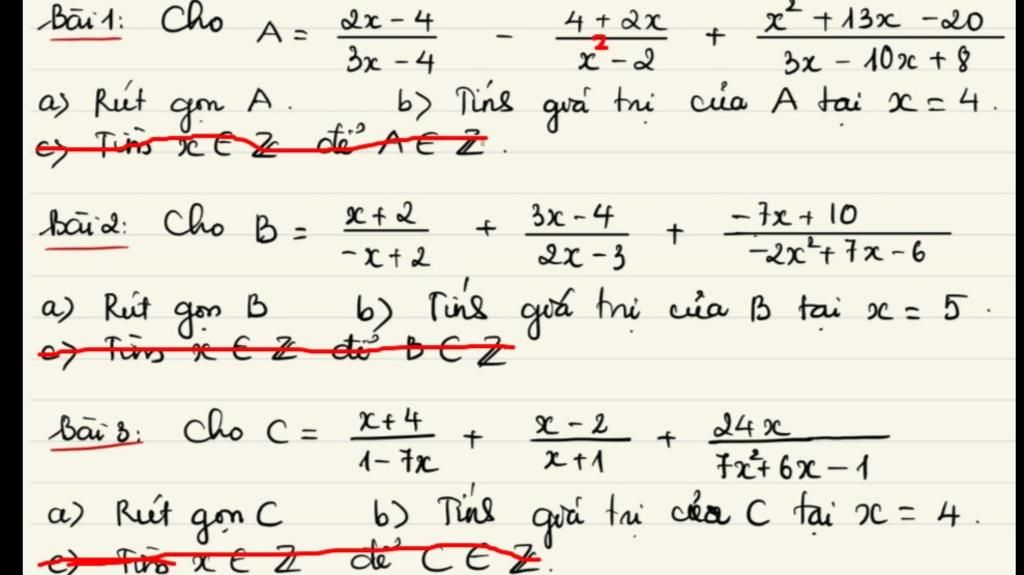 Bài 1: Cho A = (2x - 4)/(3x - 4) - (4 + 2x)/(x - 2) + (x² + 13x - 20)/(3x² - 10x + 8)
a) Rút gọn A. b) Tính giá trị của A tại x = 4.
c) Tìm x ∈ ℤ để A ∈ ℤ.
Bài 2: Cho B = (x + 2)/(-x + 2) + (3x - 4)/(2x - 3) + (-7x + 10)/(-2x² + 7x - 6)
a) Rút gọn B b) Tính giá trị của B tại x = 5.
c) Tìm x ∈ ℤ để B ∈ ℤ
Bài 3: Cho C = (x + 4)/(1 - 7x) + (x - 2)/(x + 1) + 24x/(7x² + 6x - 1)
a) Rút gọn C b) Tính giá trị của C tại x = 4.
c) Tìm x ∈ ℤ để C ∈ ℤ.